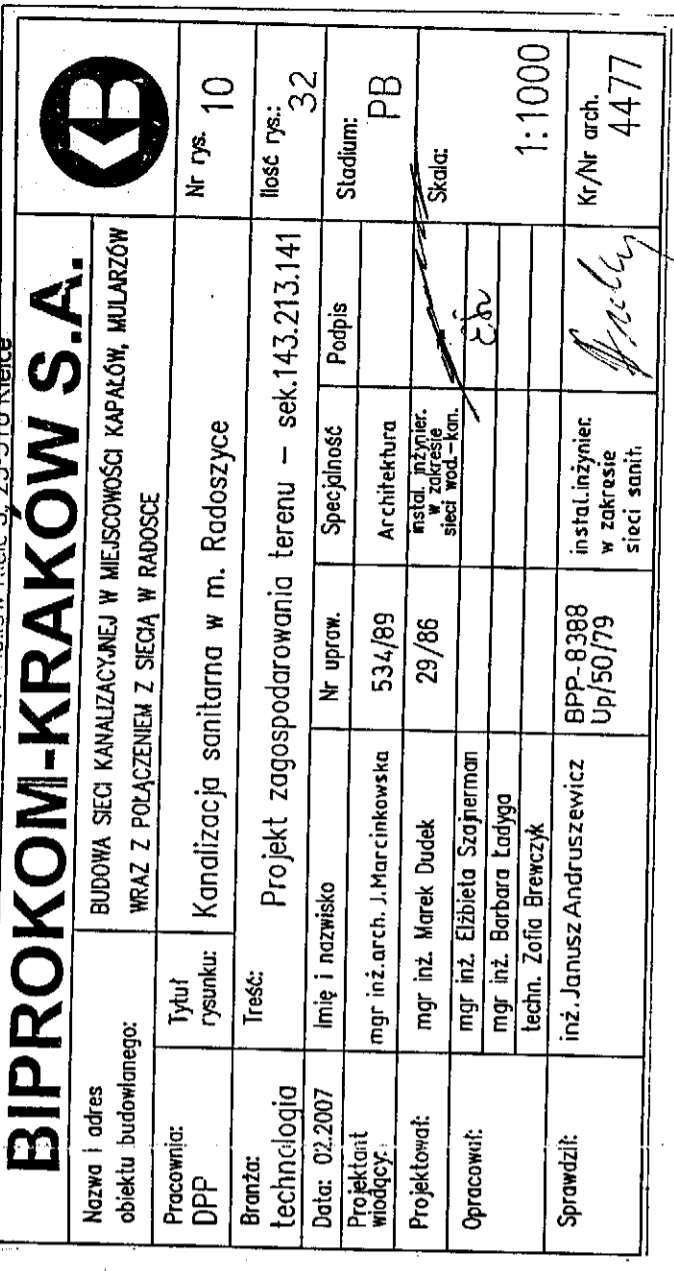 BIPROKOM-KRAKÓW S.A.
KB
Nazwa i adres
obiektu budowlanego:
BUDOWA SIECI KANALIZACYJNEJ W MIEJSCOWOŚCI KAPAŁÓW, MULARZÓW
WRAZ Z POŁĄCZENIEM Z SIECIĄ W RADOSCE
Pracownia:
DPP
Tytuł
rysunku:
Kanalizacja sanitarna w m. Radoszyce
Nr rys. 10
Branża:
technologia
Treść:
Projekt zagospodarowania terenu – sek.143.213.141
Ilość rys.:
32
Data: 02.2007
Imię i nazwisko
Nr upraw.
Specjalność
Podpis
Stadium:
PB
Projektant
wiodący:
mgr inż.arch. J.Marcinkowska
534/89
Architektura
Projektował:
mgr inż. Marek Dudek
29/86
instal. inżynier.
w zakresie
sieci wod.-kan.
Skala:
1:1000
Opracował:
mgr inż. Elżbieta Szajnerman
mgr inż. Barbara Ładyga
techn. Zofia Brewczyk
Sprawdził:
inż. Janusz Andruszewicz
BPP-8388
Up/50/79
instal.inżynier.
w zakresie
sieci sanit.
Kr/Nr arch.
4477